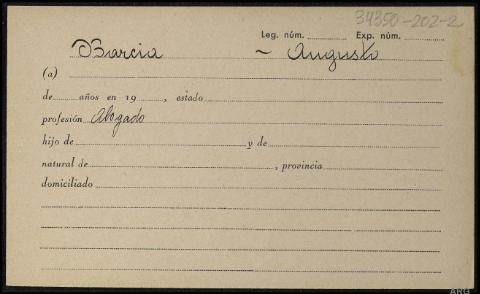 34350-202-2
Leg. núm. Exp. núm.
Barcia ~ Augusto
(a)
de años en 19 , estado
profesión Abogado
hijo de y de
natural de , provincia
domiciliado
ARG